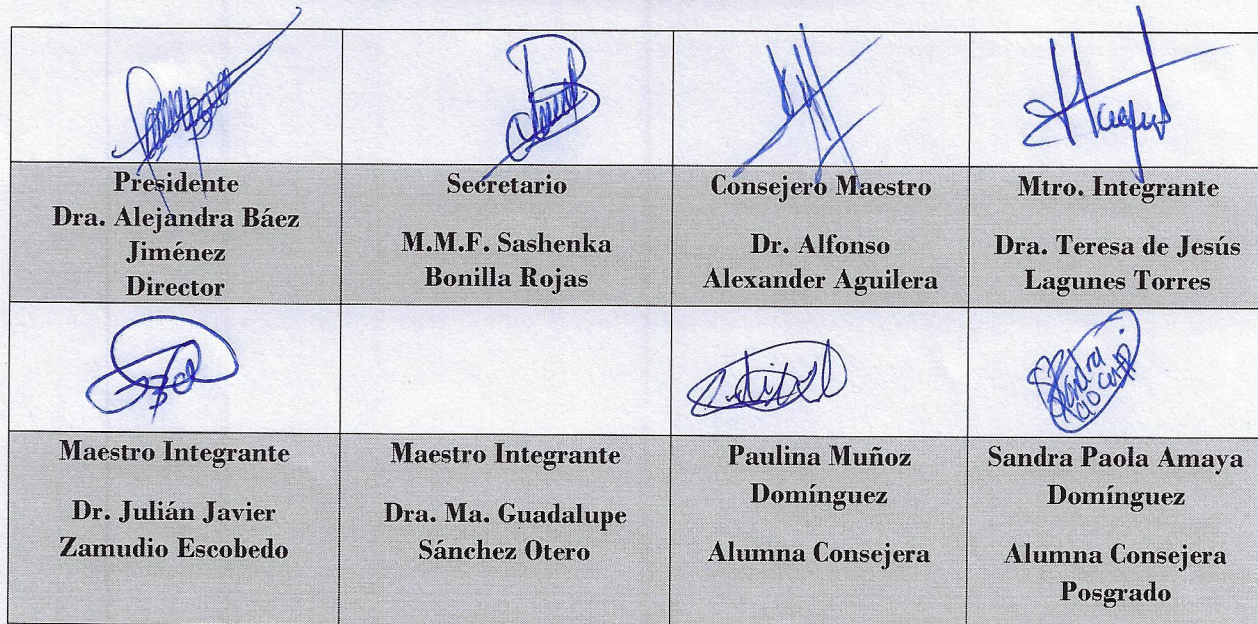 Presidente
Dra. Alejandra Báez
Jiménez
Director
Secretario
M.M.F. Sashenka
Bonilla Rojas
Consejero Maestro
Dr. Alfonso
Alexander Aguilera
Mtro. Integrante
Dra. Teresa de Jesús
Lagunes Torres
Maestro Integrante
Dr. Julián Javier
Zamudio Escobedo
Maestro Integrante
Dra. Ma. Guadalupe
Sánchez Otero
Paulina Muñoz
Domínguez
Alumna Consejera
Sandra
Sandra Paola Amaya
Domínguez
Alumna Consejera
Posgrado